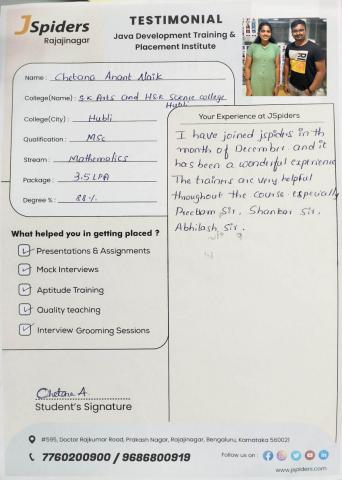 JSpiders
Rajajinagar
TESTIMONIAL
Java Development Training &
Placement Institute
Name : Chetana Anant Naik
College(Name) : S.K Arts and H.S.K Science college
Hubli
College(City) : Hubli
Qualification : MSc
Stream : Mathematics
Package : 3.5 LPA
Degree % : 88 %
What helped you in getting placed ?
Presentations & Assignments
Mock Interviews
Aptitude Training
Quality teaching
Interview Grooming Sessions
Your Experience at JSpiders
I have joined jspiders in th
month of December. and it
has been a wonderful experience
The trainers are very helpful
throughout the course. especially
Preetham Sir, Shankar Sir,
Abhilash Sir.
Chetana A
Student's Signature
#595, Doctor Rajkumar Road, Prakash Nagar, Rajajinagar, Bengaluru, Karnataka 560021
7760200900 / 9686800919
Follow us on :
www.jspiders.com